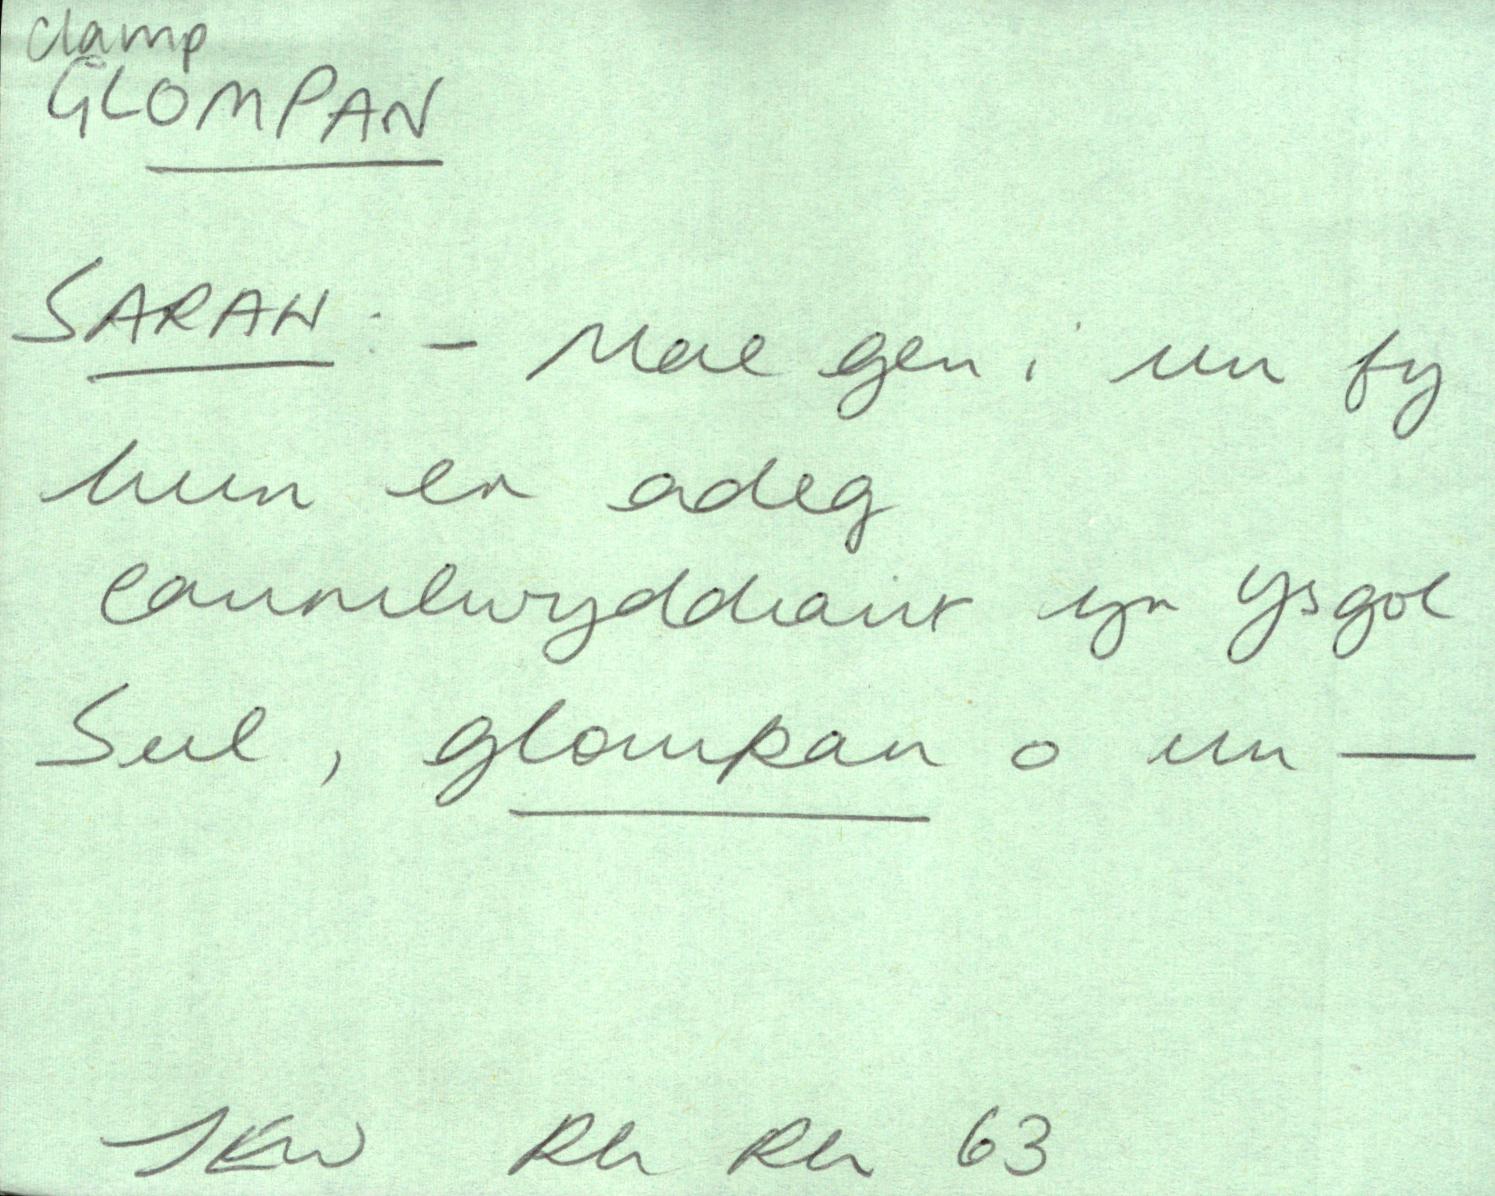 clamp
GLOMPAN
SARAH : - Mae gen i un fy
hun er adeg
canmlwyddiant yr Ysgol
Sul, glompan o un —
JEW Rh Rh 63